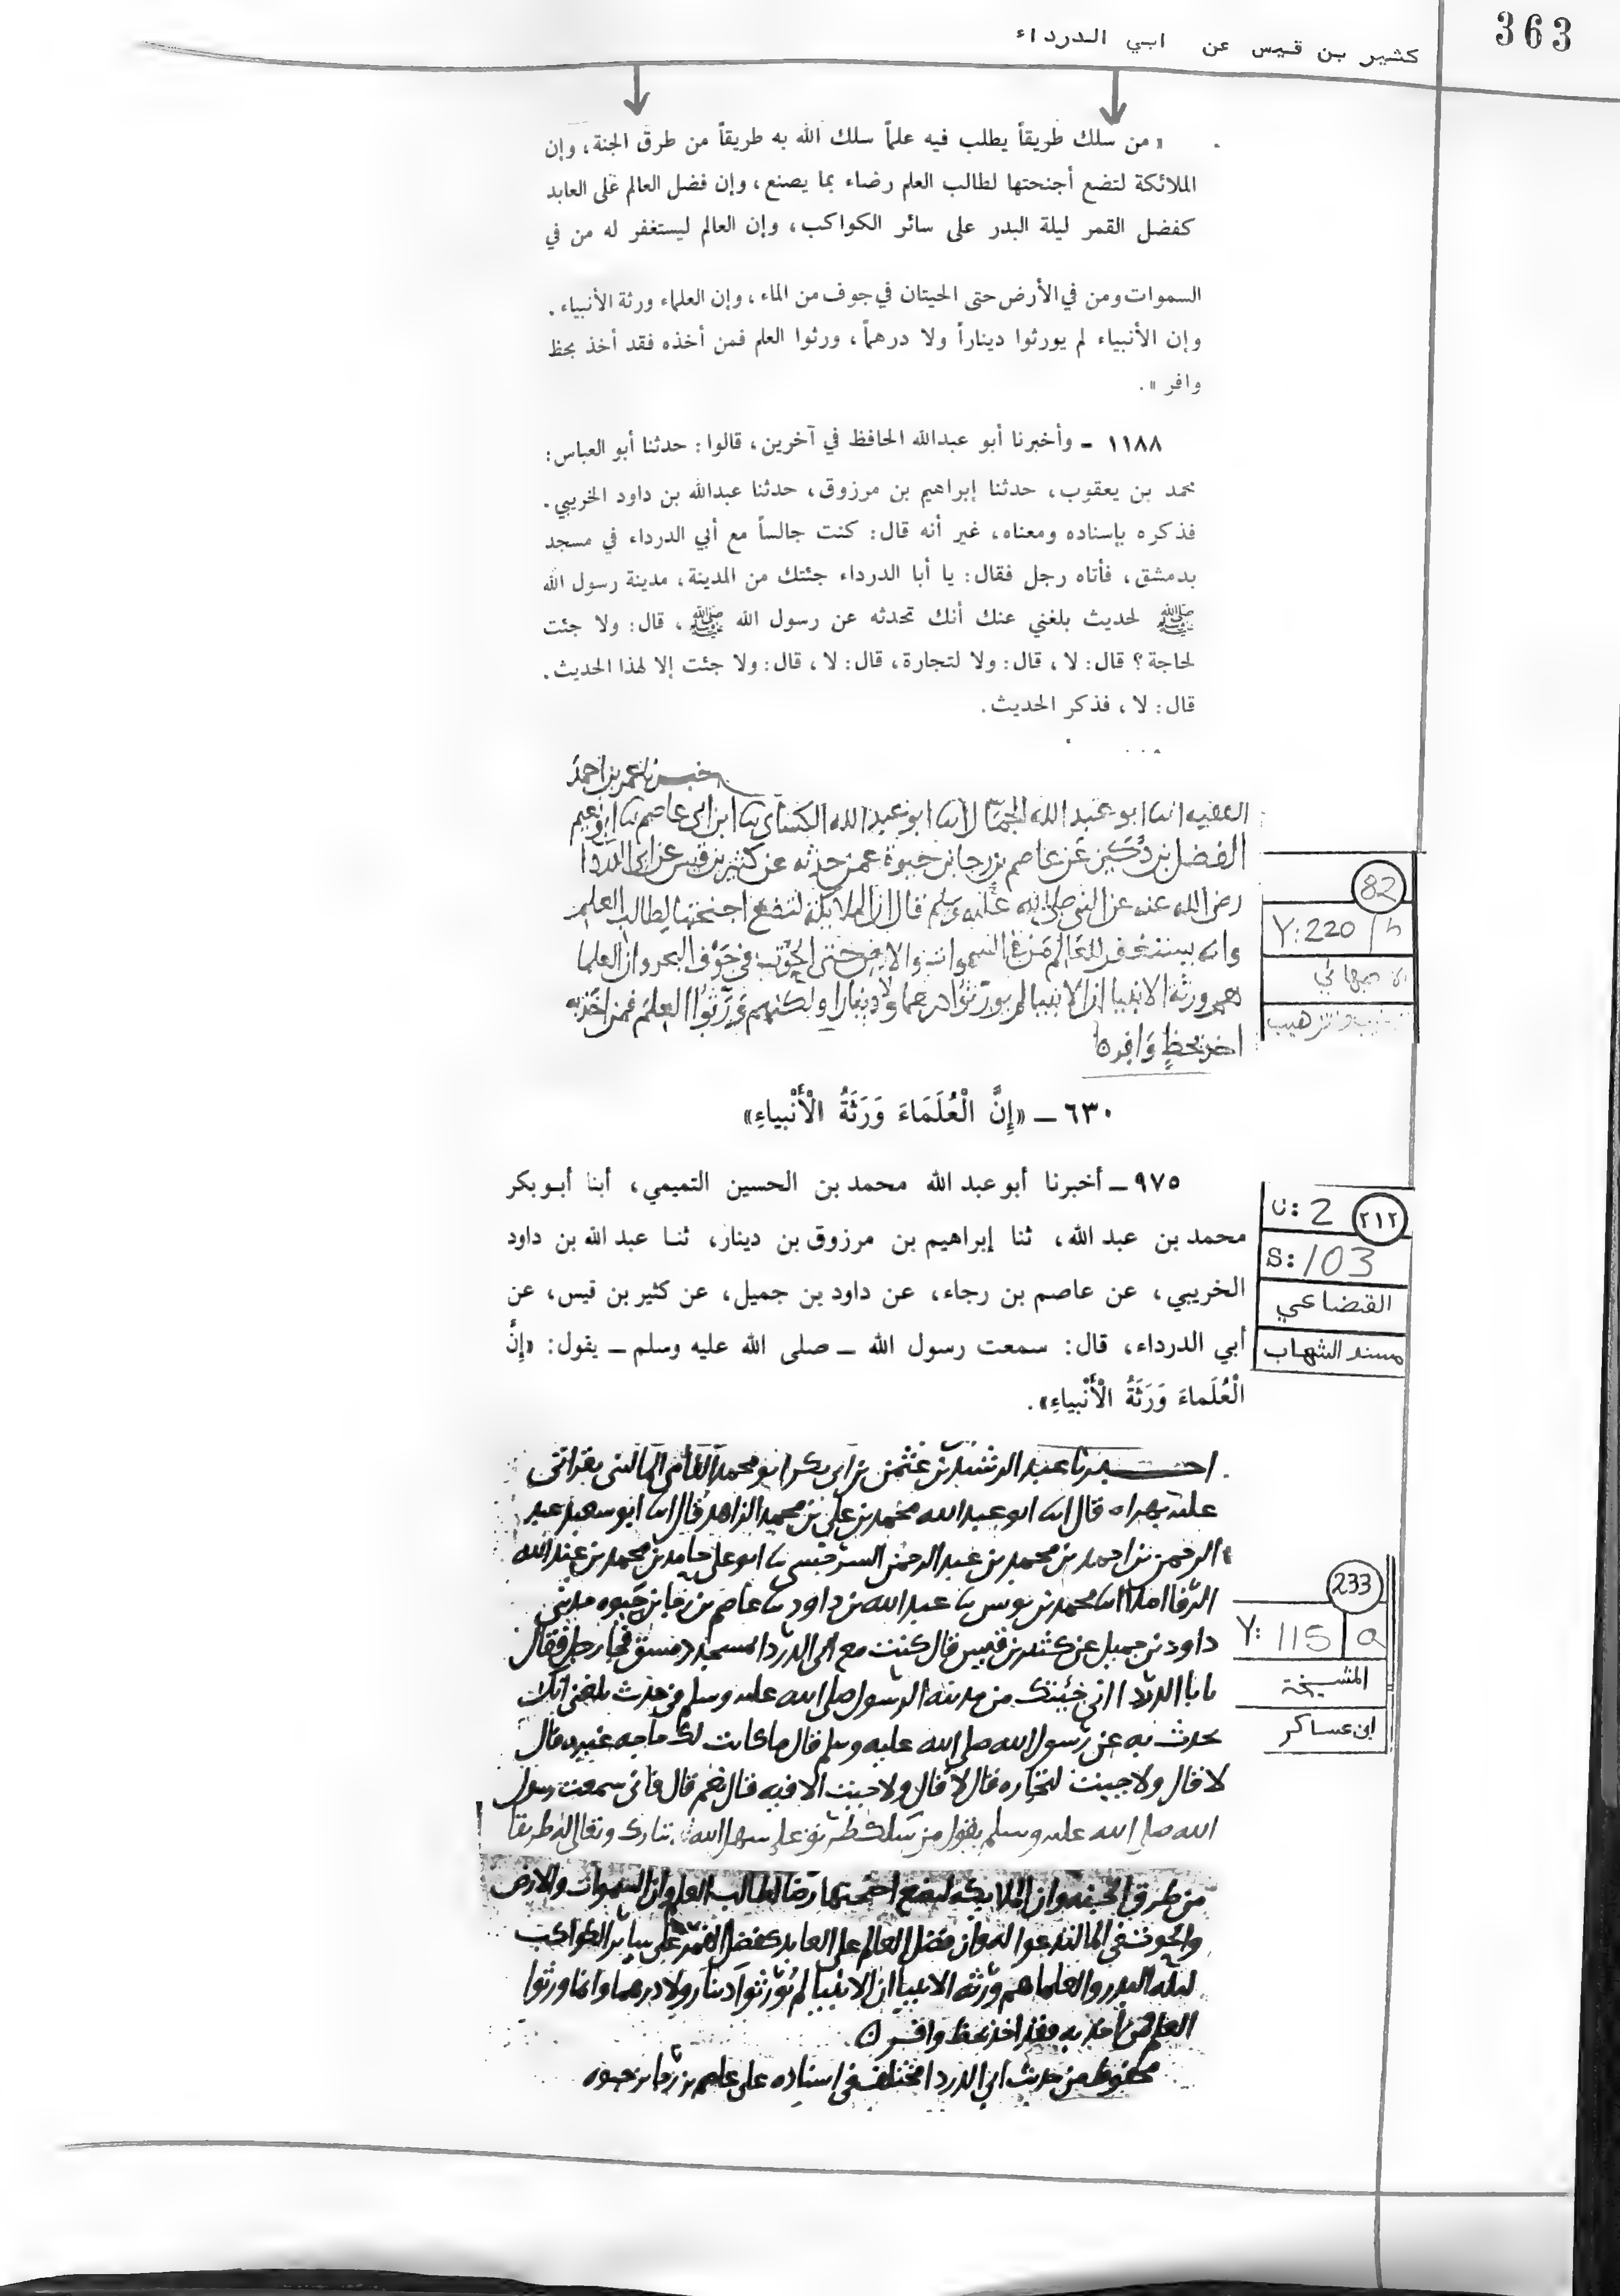 363
كثير بن قيس عن ابي الدرداء
« من سلك طريقاً يطلب فيه علماً سلك الله به طريقاً من طرق الجنة ، وإن
الملائكة لتضع أجنحتها لطالب العلم رضاء بما يصنع ، وإن فضل العالم على العابد
كفضل القمر ليلة البدر على سائر الكواكب ، وإن العالم ليستغفر له من في
السموات ومن في الأرض حتى الحيتان في جوف من الماء ، وإن العلماء ورثة الأنبياء .
وإن الأنبياء لم يورثوا ديناراً ولا درهماً ، ورثوا العلم فمن أخذه فقد أخذ بحظ
وافر » .
١١٨٨ - وأخبرنا أبو عبدالله الحافظ في آخرين ، قالوا : حدثنا أبو العباس :
محمد بن يعقوب ، حدثنا إبراهيم بن مرزوق ، حدثنا عبدالله بن داود الخريبي .
فذكره بإسناده ومعناه ، غير أنه قال : كنت جالساً مع أبي الدرداء في مسجد
بدمشق ، فأتاه رجل فقال : يا أبا الدرداء جئتك من المدينة ، مدينة رسول الله
ﷺ لحديث بلغني عنك أنك تحدثه عن رسول الله ﷺ ، قال : ولا جئت
لحاجة ؟ قال : لا ، قال : ولا لتجارة ، قال : لا ، قال : ولا جئت إلا لهذا الحديث .
قال : لا ، فذكر الحديث .
عمر بن احمد
الفقيه انا ابو عبد الله الجمال انا ابو عبد الله الكسائى نا ابن ابى عاصم نا ابو نعيم
الفضل بن دكين عن عاصم بن رجا بن حيوة عمن حدثه عن كثير بن قيس عن ابى الدردا
رضى الله عنه عن النبى صلى الله عليه وسلم قال ان الملايكة لتضع اجنحتها لطالب العلم
وانه يستغفر للعالم من فى السموات والارض حتى الحوت فى جوف البحر وان العلما
هم ورثة الانبيا ان الانبيا لم يورثوا درهما ولا دينارا ولكنهم ورثوا العلم فمن اخذ به
اخذ بحظٍ وَافِر
82
Y: 220 / h
٦٣٠ – «إِنَّ الْعُلَمَاءَ وَرَثَةُ الْأَنْبياءِ»
٩٧٥ – أخبرنا أبو عبد الله محمد بن الحسين التميمي، أبنا أبو بكر
محمد بن عبد الله، ثنا إبراهيم بن مرزوق بن دينار، ثنا عبد الله بن داود
الخريبي، عن عاصم بن رجاء، عن داود بن جميل، عن كثير بن قيس، عن
أبي الدرداء، قال: سمعت رسول الله – صلى الله عليه وسلم – يقول: «إِنَّ
الْعُلَماءَ وَرَثَةُ الْأَنْبياءِ».
٢١٢
U: 2
S: 103
القضاعي
مسند الشهاب
اخبرنا عبد الرشيد بن عثمن بن ابى بكر ابو محمد المالينى بقراتى
عليه بهراه قال انا ابو عبد الله محمد بن على بن محمد الزاهد قال انا ابو سعيد عبد
الرحمن بن احمد بن محمد بن عبد الرحمن السرخسى نا ابو على حامد بن محمد بن عبد الله
الرفا املا انا محمد بن يونس نا عبد الله بن داود نا عاصم بن رجا بن حيوه حدثنى
داود بن جميل عن كثير بن قيس قال كنت مع ابى الدردا بمسجد دمشق فجا رجل فقال
يابا الدردا انى جئتك من مدينة الرسول صلى الله عليه وسلم فى حديث بلغنى انك
تحدث به عن رسول الله صلى الله عليه وسلم قال ما كانت لك حاجه غيره قال
لا قال ولا جيت لتجاره قال لا قال ولا جيت الا فيه قال نعم قال فانى سمعت رسول
الله صلى الله عليه وسلم يقول من سلك علم سهل الله تبارك وتعالى له طريقا
من طرق الجنه وان الملايكه لتضع اجنحتها رضا لطالب العلم وان السموات والارض
والحوت فى الما لتدعوا له وان فضل العالم على العابد كفضل القمر على ساير الكواكب
ليله البدر والعلما هم ورثه الانبيا ان الانبيا لم يورثوا دينار ولا درهما وانما ورثوا
العلم فمن اخذ به فقد اخذ بحظ وافر
محفوظ من حديث ابى الدردا مختلف فى اسناده على عاصم بن رجا بن حيوه
233
Y: 115 / a
المشيخة
ابن عساكر